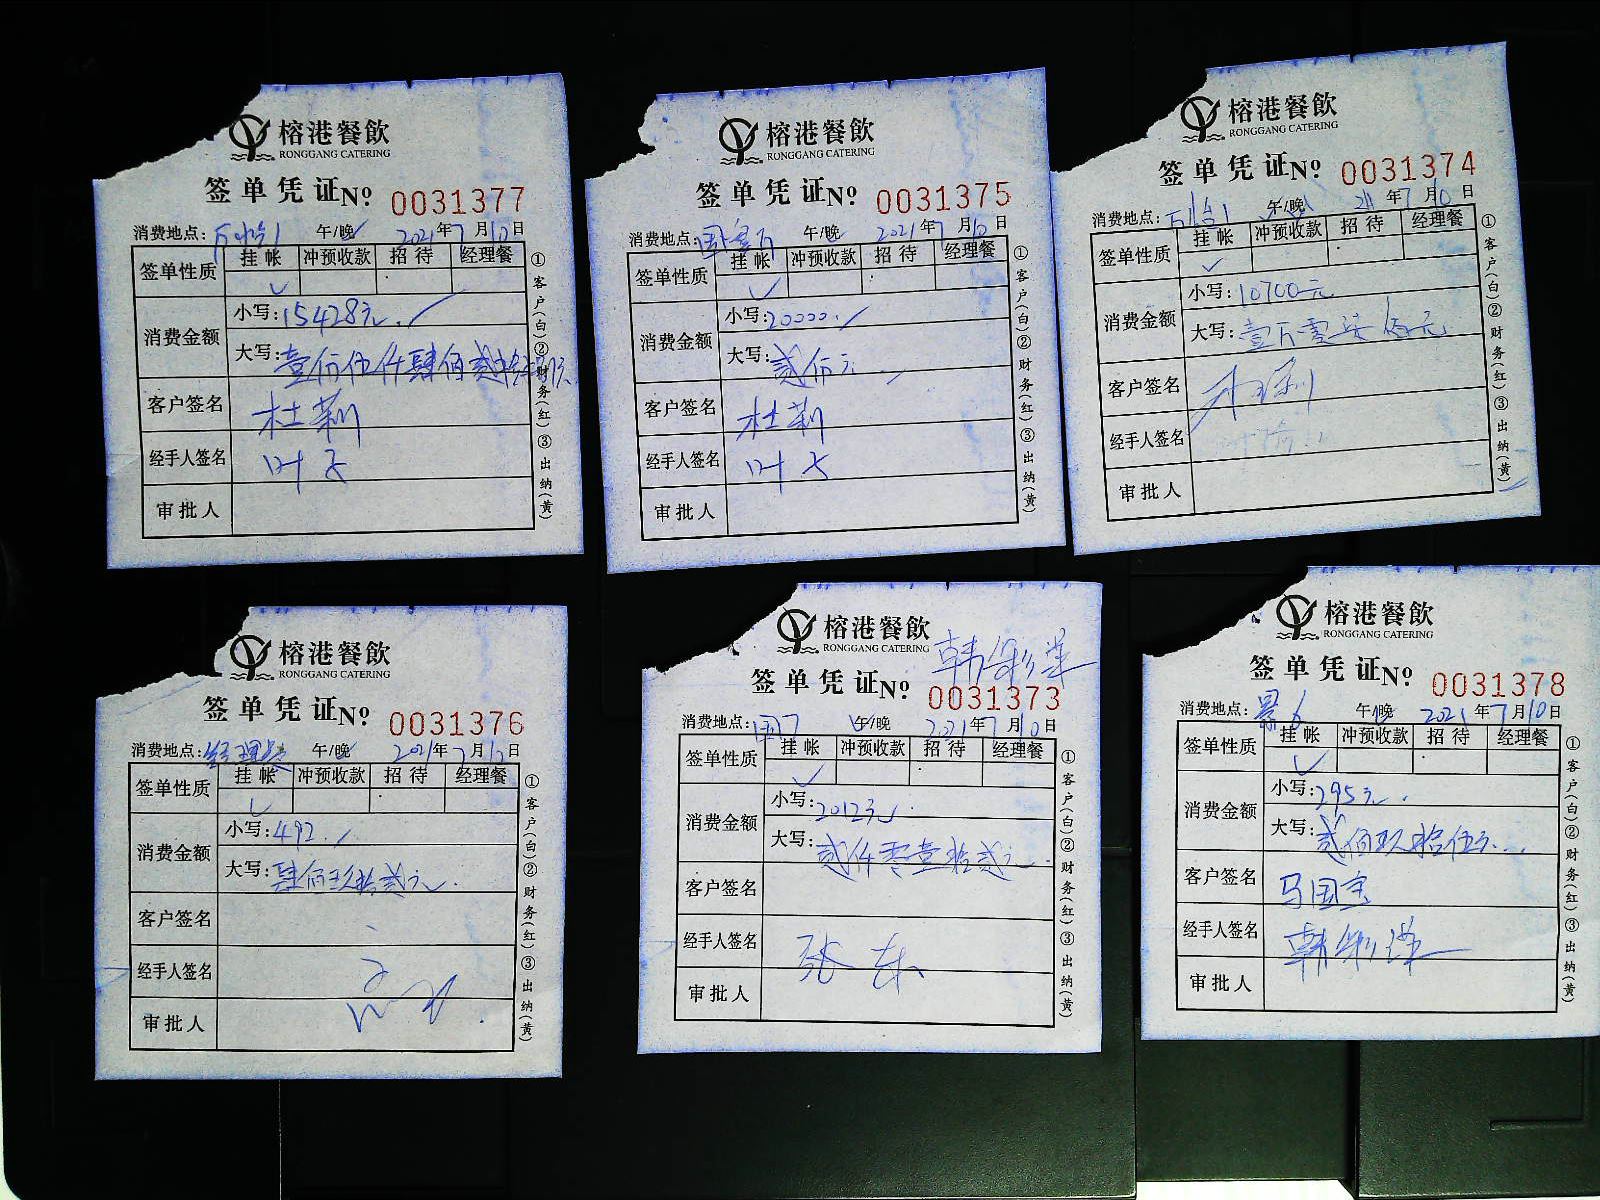 榕港餐飲
RONGGANG CATERING
签单凭证 No 0031377
消费地点: 午/晚 2021年7月10日
签单性质 挂帐 冲预收款 招待 经理餐
✓
消费金额 小写:15428元
大写:壹万伍仟肆佰贰拾捌元
客户签名 杜莉
经手人签名 叶子
审批人
①客户(白)②财务(红)③出纳(黄)
榕港餐飲
RONGGANG CATERING
签单凭证 No 0031375
消费地点: 午/晚 2021年7月10日
签单性质 挂帐 冲预收款 招待 经理餐
✓
消费金额 小写:20000.
大写:贰万元
客户签名 杜莉
经手人签名 叶子
审批人
①客户(白)②财务(红)③出纳(黄)
榕港餐飲
RONGGANG CATERING
签单凭证 No 0031374
消费地点: 午/晚 21年7月10日
签单性质 挂帐 冲预收款 招待 经理餐
✓
消费金额 小写:10700元
大写:壹万零柒佰元
客户签名
经手人签名
审批人
①客户(白)②财务(红)③出纳(黄)
榕港餐飲
RONGGANG CATERING
签单凭证 No 0031376
消费地点:经理餐 午/晚 2021年7月10日
签单性质 挂帐 冲预收款 招待 经理餐
✓
消费金额 小写:492.
大写:肆佰玖拾贰元
客户签名
经手人签名
审批人
①客户(白)②财务(红)③出纳(黄)
榕港餐飲
RONGGANG CATERING
韩彩萍
签单凭证 No 0031373
消费地点:国7 午/晚 2021年7月10日
签单性质 挂帐 冲预收款 招待 经理餐
✓
消费金额 小写:2012元
大写:贰仟零壹拾贰元
客户签名
经手人签名 张东
审批人
①客户(白)②财务(红)③出纳(黄)
榕港餐飲
RONGGANG CATERING
签单凭证 No 0031378
消费地点:景6 午/晚 2021年7月10日
签单性质 挂帐 冲预收款 招待 经理餐
✓
消费金额 小写:295元.
大写:贰佰玖拾伍元
客户签名 马国宝
经手人签名 韩彩萍
审批人
①客户(白)②财务(红)③出纳(黄)